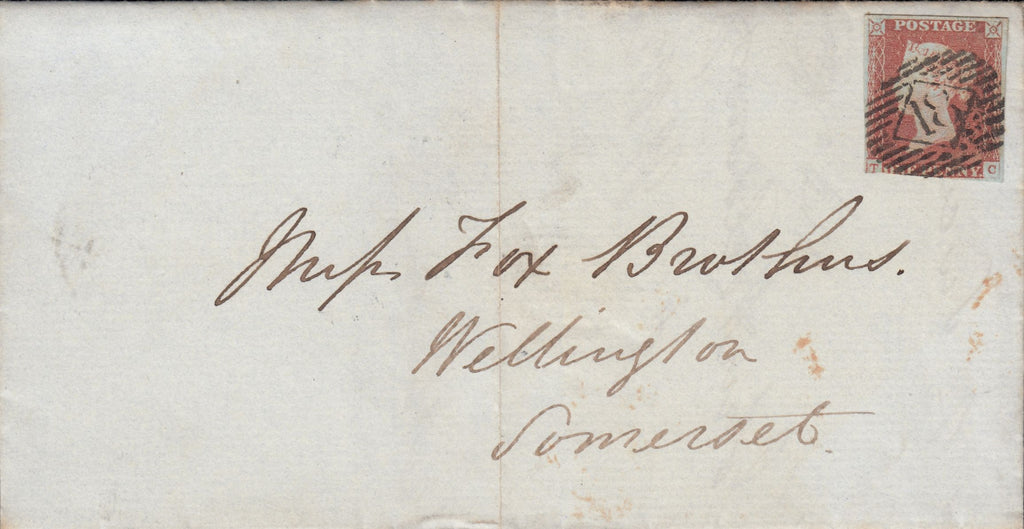 POSTAGE
18
T C
Messrs Fox Brothers.
Wellington
Somerset.